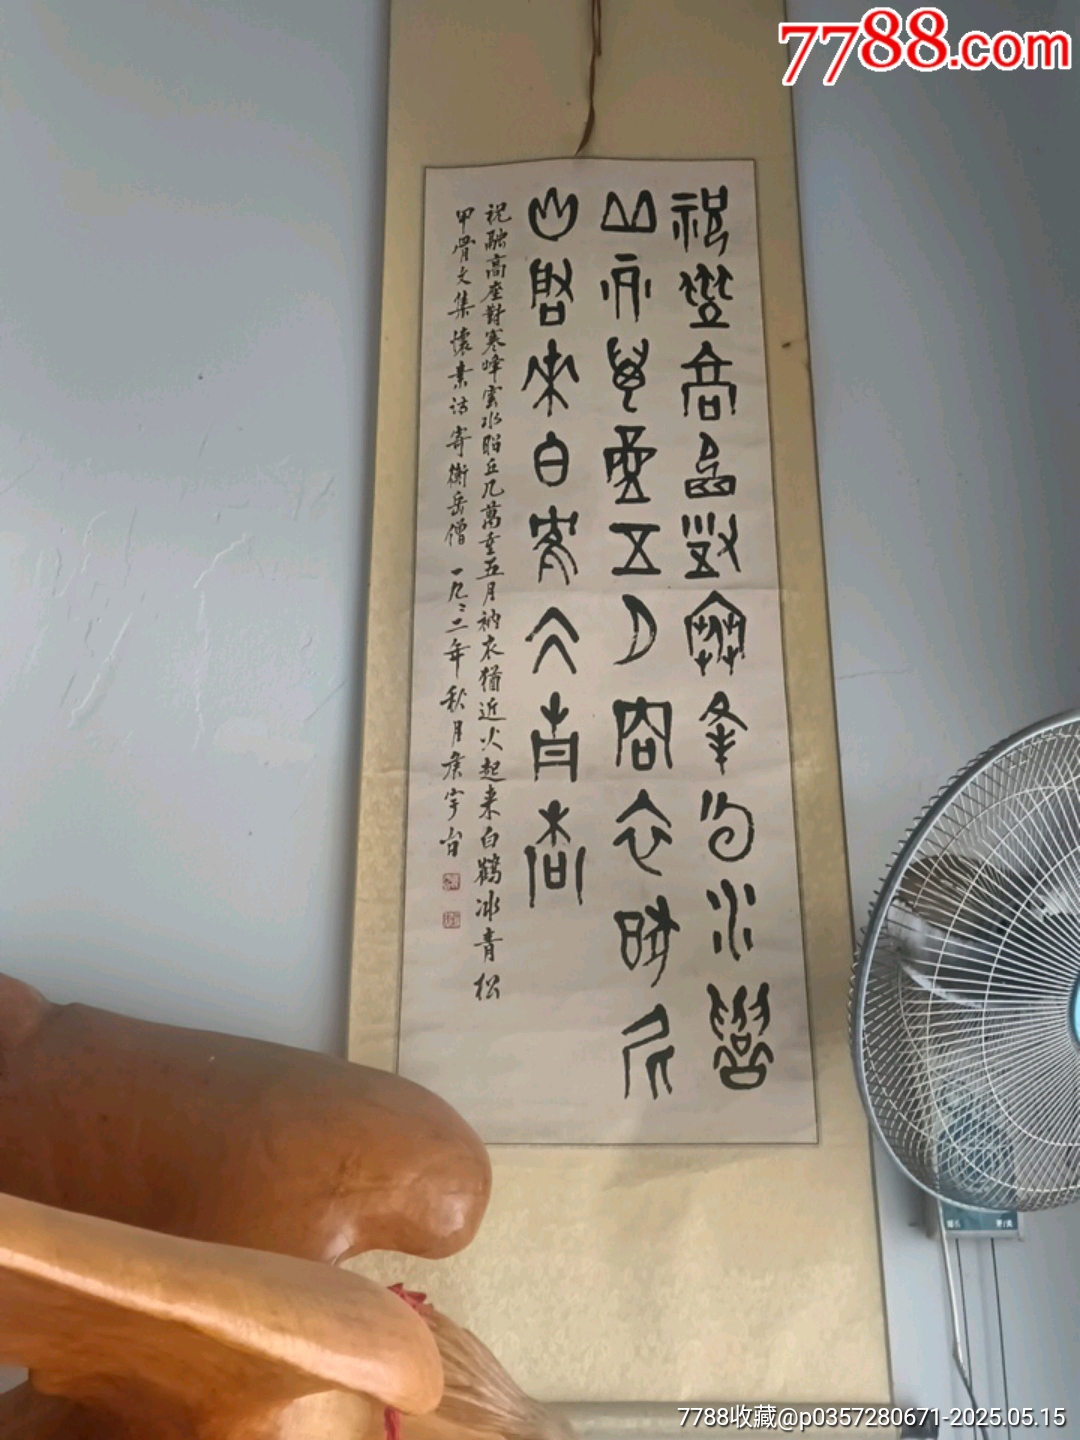 7788.com
祝融高座對寒峰雲水昭
丘几萬重五月衲衣猶近
火起來白鶴冰青松
祝融高座對寒峰雲水昭丘几萬重五月衲衣猶近火起来白鶴冰青松
甲骨文集懷素诗寄衡岳僧 一九九二年秋月
7788收藏@p0357280671-2025.05.15